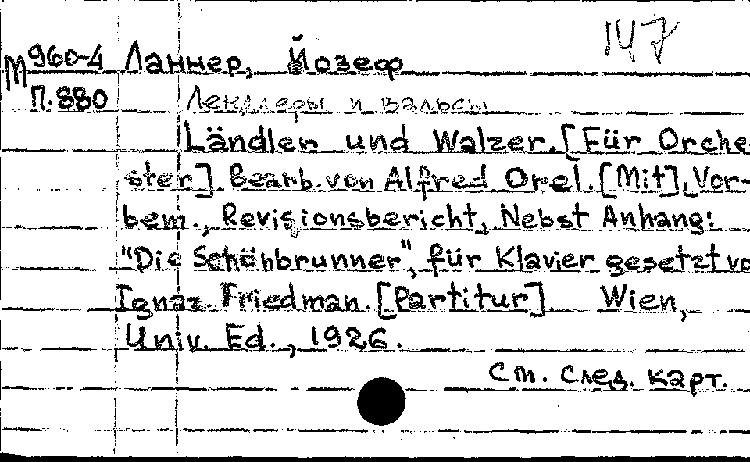 147
М 960-4 Ланнер, Йозеф
П.880 Лендлеры и вальсы
Ländler und Walzer. [Für Orche-
ster]. Bearb. von Alfred Orel. [Mit], Vor-
bem., Revisionsbericht, Nebst Anhang:
"Die Schönbrunner", für Klavier gesetzt vo
Ignaz Friedman. [Partitur]. Wien,
Univ. Ed., 1926.
См. след. карт.